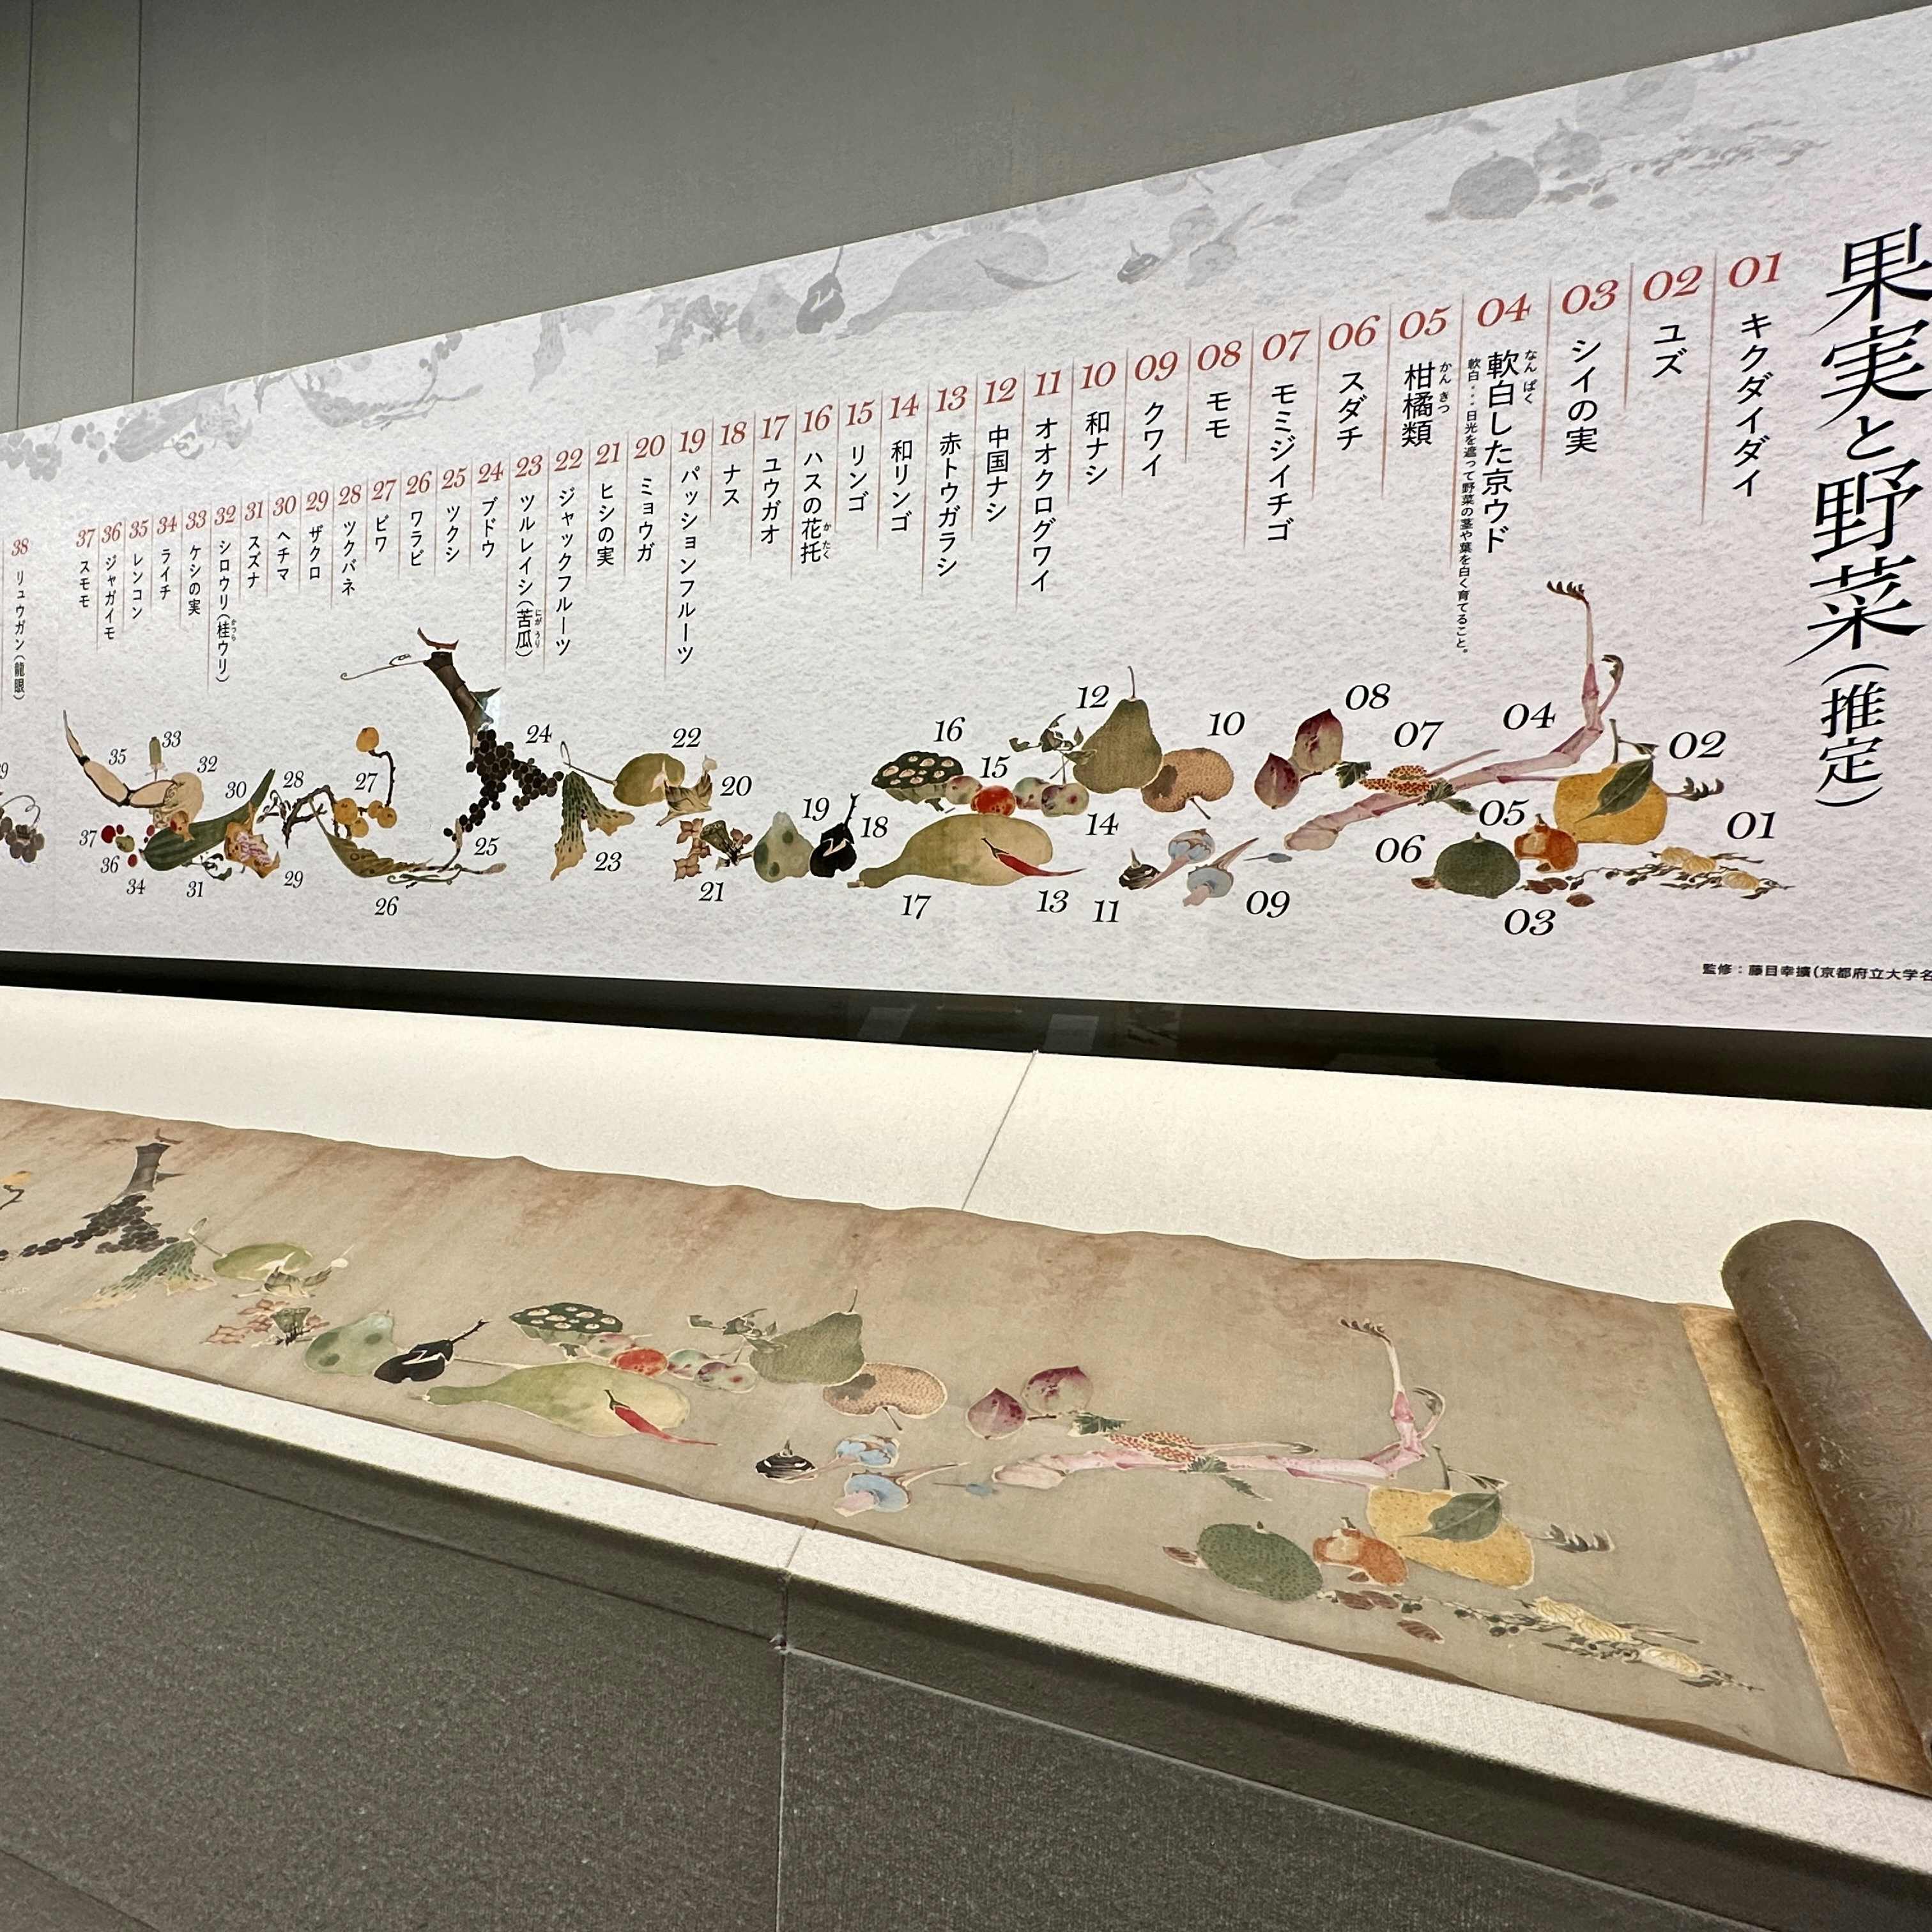 果実と野菜(推定)
01 キクダイダイ
02 ユズ
03 シイの実
04 軟白した京ウド
なんぱく
軟白…日光を遮って野菜の茎や葉を白く育てること。
05 柑橘類
かんきつ
06 スダチ
07 モミジイチゴ
08 モモ
09 クワイ
10 和ナシ
11 オオクログワイ
12 中国ナシ
13 赤トウガラシ
14 和リンゴ
15 リンゴ
16 ハスの花托
かたく
17 ユウガオ
18 ナス
19 パッションフルーツ
20 ミョウガ
21 ヒシの実
22 ジャックフルーツ
23 ツルレイシ(苦瓜)
にがうり
24 ブドウ
25 ツクシ
26 ワラビ
27 ビワ
28 ツクバネ
29 ザクロ
30 ヘチマ
31 スズナ
32 シロウリ(桂ウリ)
かつら
33 ケシの実
34 ライチ
35 レンコン
36 ジャガイモ
37 スモモ
38 リュウガン(龍眼)
01
02
03
04
05
06
07
08
09
10
11
12
13
14
15
16
17
18
19
20
21
22
23
24
25
26
27
28
29
30
31
32
33
34
35
36
37
監修:藤目幸擴(京都府立大学名